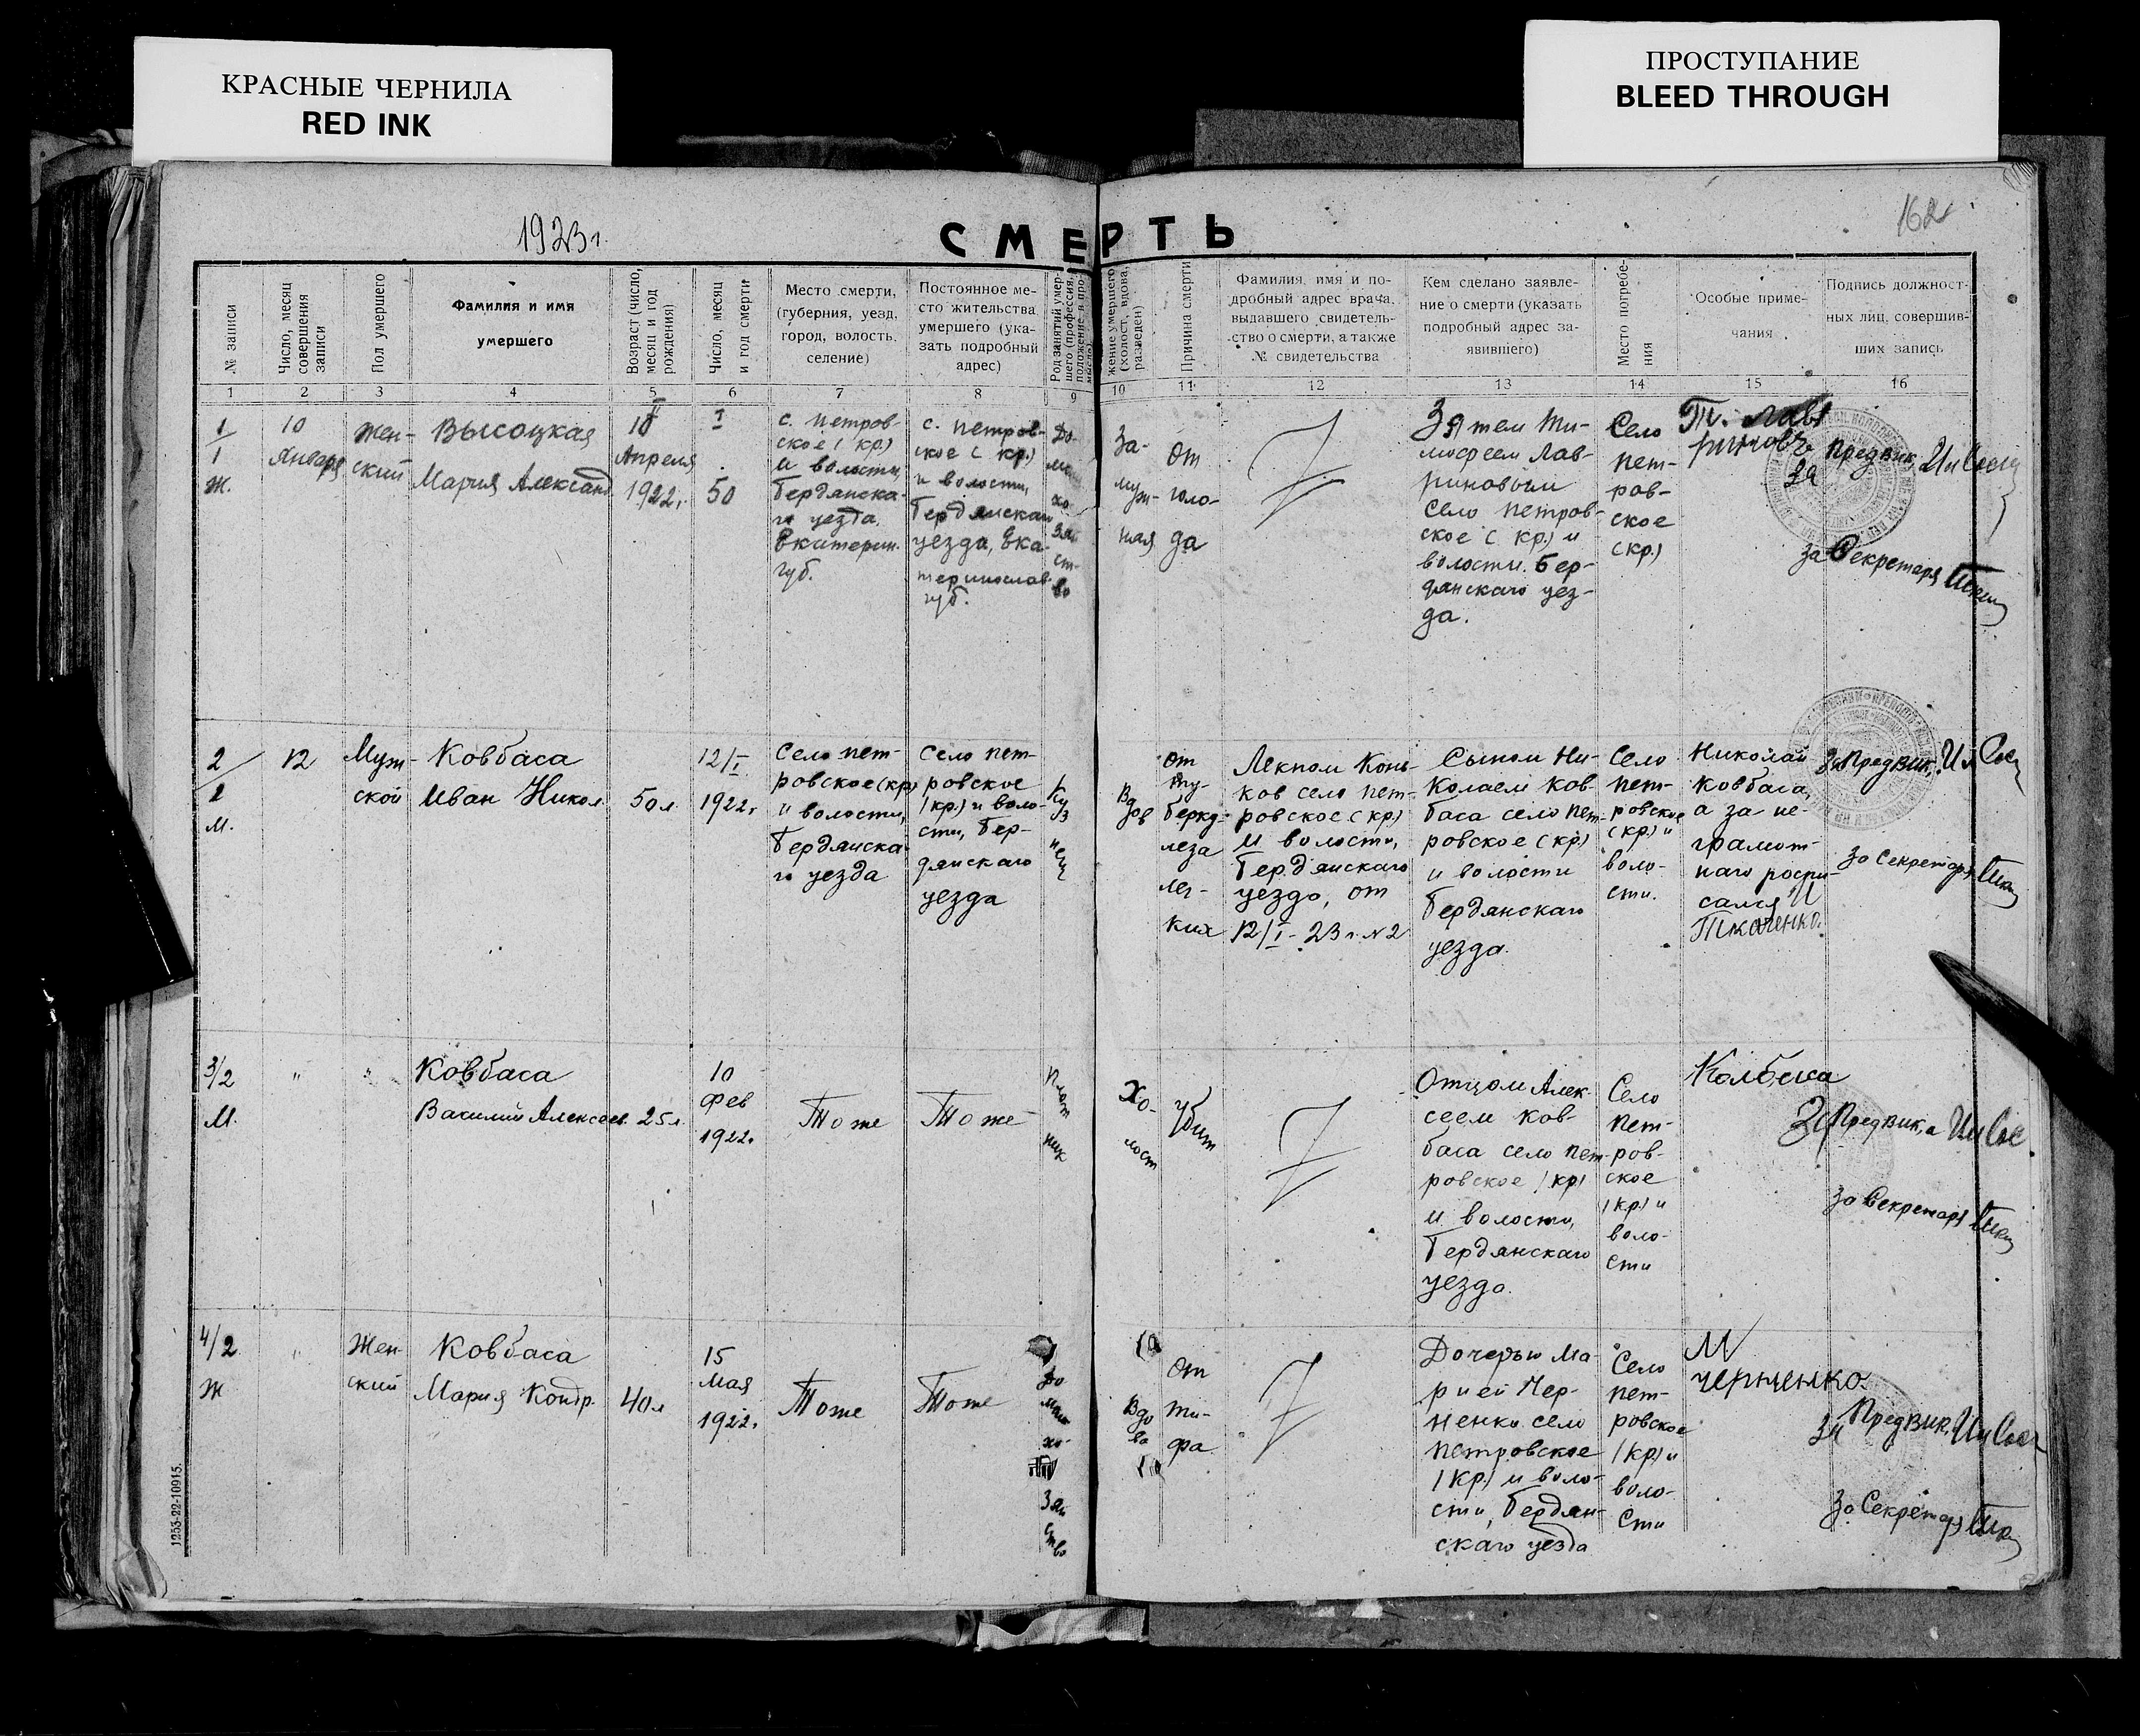 КРАСНЫЕ ЧЕРНИЛА
RED INK
ПРОСТУПАНИЕ
BLEED THROUGH
1923 г.
СМЕРТЬ
162
№ записи
Число, месяц
совершения
записи
Пол умершего
Фамилия и имя
умершего
Возраст (число,
месяц и год
рождения)
Число, месяц
и год смерти
Место смерти,
(губерния, уезд,
город, волость,
селение)
Постоянное ме-
сто жительства
умершего (ука-
зать подробный
адрес)
Род занятий умер-
шего (профессия,
положение и про-
жение умершего
(холост, вдова,
разведен)
Причина смерти
Фамилия, имя и по-
дробный адрес врача,
выдавшего свидетель-
ство о смерти, а также
№ свидетельства
Кем сделано заявле-
ние о смерти (указать
подробный адрес за-
явившего)
Место погребе-
ния
Особые приме-
чания
Подпись должност-
ных лиц, совершив-
ших запись
1 2 3 4 5 6 7 8 9 10 11 12 13 14 15 16
1/1
Ж.
10
Января
Жен-
ский
Высоцкая
Мария Александ
10
Апреля
1922 г.
50
с. Петров-
ское (кр.)
и волости,
Бердянска-
го уезда,
Екатерин.
губ.
с. Петров-
ское (кр.)
и волости,
Бердянскаго
уезда, Ека-
теринослав.
губ.
До-
маш
хо-
зяй
ст-
во
За-
муж-
ная
От
голо-
да
Зятем Ти-
мофеем Лав-
риновым
село Петров-
ское (кр.) и
волости. Бер-
дянскаго уез-
да.
Село
Пет-
ров-
ское
(кр.)
Т. Лав
риновъ
За Предвик
За Секретаря
2/1
М.
12
Муж-
ской
Ковбаса
Иван Никол.
50 л.
12/I
1922 г.
Село Пет-
ровское (кр)
и волости,
Бердянска-
го уезда
Село Пет-
ровское
(кр.) и воло-
сти, Бер-
дянскаго
уезда
Куз
нец
Вдов
От
ту-
берку-
леза
лег-
ких
Лекпом Конь-
ков село Пет-
ровское (кр.)
и волости,
Бердянскаго
уезда, от
12/I - 23 г. № 2
Сыном Ни-
колаем Ков-
баса село Пет-
ровское (кр.)
и волости
Бердянскаго
уезда.
Село
Пет-
ровское
(кр.) и
воло-
сти.
Николай
Ковбаса,
а за не-
грамот-
наго роспи-
сался И
Ткаченко.
За Предвик.
За Секретаря
3/2
М.
"
"
Ковбаса
Василий Алексеев.
25 л.
10
Фев
1922 г.
То же
То же
Плот
ник
Хо-
лост
Убит
Отцом Алек-
сеем Ков-
баса село Пет-
ровское (кр)
и волости,
Бердянскаго
уезда.
Село
Пет-
ров-
ское
(кр.) и
воло-
сти
Колбаса
За Предвик,а
За Секретаря
4/2
Ж
"
Жен-
ский
Ковбаса
Мария Кондр.
40 л
15
Мая
1922 г.
То же
То же
До
маш
хо-
зяй
ство
Вдо
ва
От
ти-
фа
Дочерью Ма-
рией Чер-
ненко село
Петровское
(кр.) и воло-
сти, Бердян-
скаго уезда
Село
Пет-
ровское
(кр) и
воло-
сти
М
Черненко.
За Предвик.
За Секретаря
1253-22-10915.